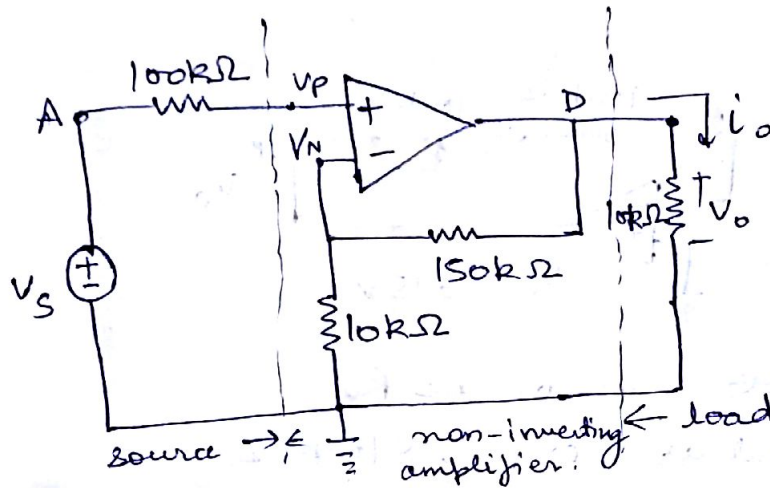 100kΩ
A
VP
+
D
VN
-
io
+
10kΩ
Vo
-
150kΩ
+
-
VS
10kΩ
source
non-inverting
amplifier.
load